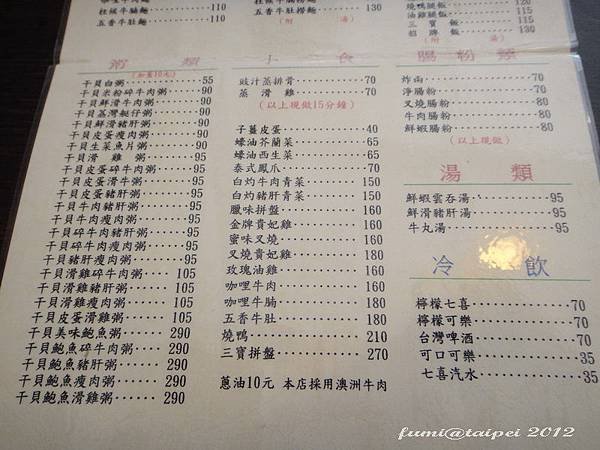 桂候牛腩麵 110
五香牛肚麵 110
五香牛肚撈麵 130
(附 湯)
燒鴨飯 115
油雞腿飯 115
三寶飯 120
招牌飯 105
(附 湯)
粥類
(加蛋10元)
干貝白粥 55
干貝米粉碎牛肉粥 90
干貝鮮滑牛肉粥 90
干貝荔灣艇仔粥 90
干貝鮮滑豬肝粥 90
干貝皮蛋瘦肉粥 90
干貝生菜魚片粥 90
干貝滑雞粥 95
干貝皮蛋碎牛肉粥 95
干貝皮蛋滑牛粥 95
干貝皮蛋豬肝粥 95
干貝牛肉豬肝粥 95
干貝牛肉瘦肉粥 95
干貝碎牛肉豬肝粥 95
干貝碎牛肉瘦肉粥 95
干貝豬肝瘦肉粥 95
干貝滑雞碎牛肉粥 105
干貝滑雞豬肝粥 105
干貝滑雞瘦肉粥 105
干貝皮蛋滑雞粥 105
干貝美味鮑魚粥 290
干貝鮑魚碎牛肉粥 290
干貝鮑魚豬肝粥 290
干貝鮑魚瘦肉粥 290
干貝鮑魚滑雞粥 290
小食
豉汁蒸排骨 70
蒸滑雞 70
(以上現做15分鐘)
子薑皮蛋 40
蠔油芥蘭菜 65
蠔油西生菜 65
泰式鳳爪 70
白灼牛肉青菜 150
白灼豬肝青菜 150
臘味拼盤 160
金牌貴妃雞 160
蜜味叉燒 160
叉燒貴妃雞 160
玫瑰油雞 160
咖哩牛肉 160
咖哩牛腩 180
五香牛肚 180
燒鴨 210
三寶拼盤 270
蔥油10元 本店採用澳洲牛肉
腸粉類
炸兩 70
淨腸粉 70
叉燒腸粉 80
牛肉腸粉 80
鮮蝦腸粉 80
(以上現做)
湯類
鮮蝦雲吞湯 95
鮮滑豬肝湯 95
牛丸湯 95
冷飲
檸檬七喜 70
檸檬可樂 70
台灣啤酒 70
可口可樂 35
七喜汽水 35
fumi@taipei 2012